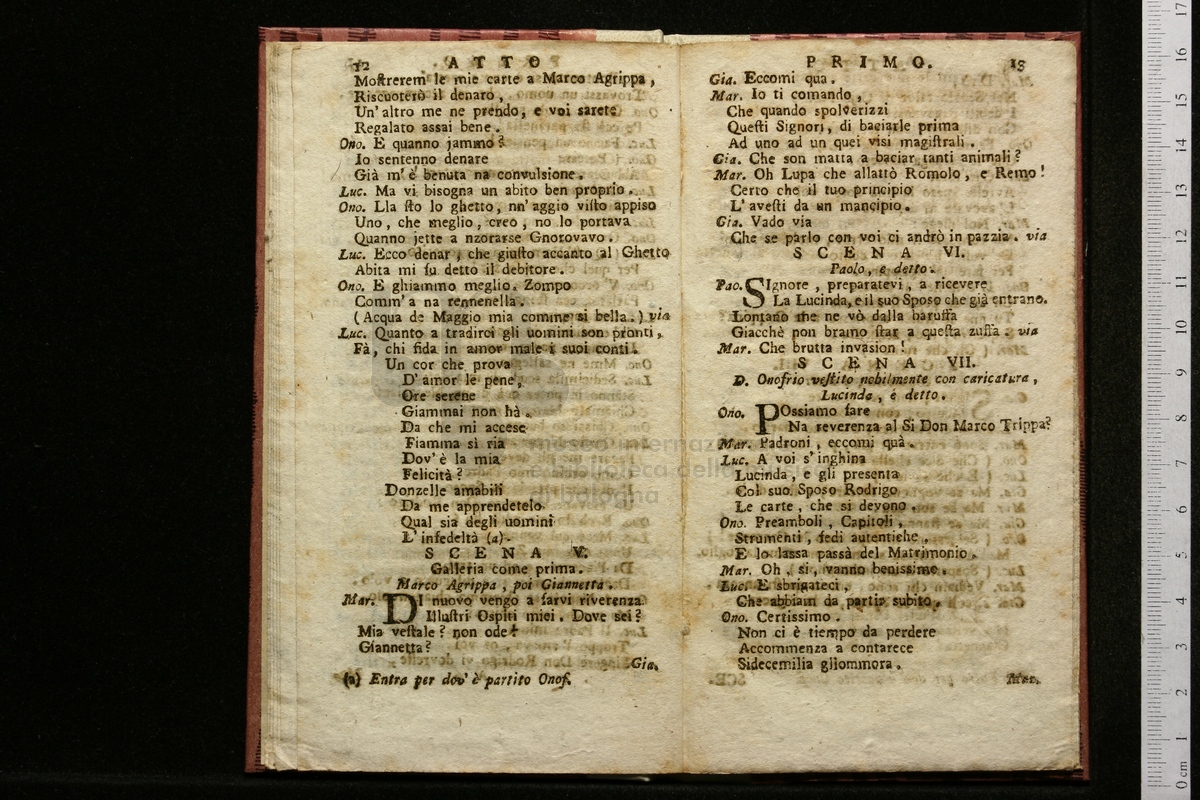 12 ATTO
Moſtrerem le mie carte a Marco Agrippa,
Riscuoterò il denaro,
Un' altro me ne prendo, e voi sarete
Regalato assai bene.
Ono. E quanno jammo?
Io sentenno denare
Già m' è benuta na convulsione.
Luc. Ma vi bisogna un abito ben proprio.
Ono. Lla ſto lo ghetto, nn' aggio viſto appiso
Uno, che meglio, creo, no lo portava
Quanno jette a nzorarse Gnorovavo.
Luc. Ecco denar, che giuſto accanto al Ghetto
Abita mi fu detto il debitore.
Ono. E ghiammo meglio. Zompo
Comm' a na rennenella.
(Acqua de Maggio mia comme si bella.) via
Luc. Quanto a tradirci gli uomini son pronti,
Fà, chi fida in amor male i suoi conti.
Un cor che prova
D' amor le pene,
Ore serene
Giammai non hà.
Da che mi accese
Fiamma sì ria
Dov' è la mia
Felicità?
Donzelle amabili
Da me apprendetelo
Qual sia degli uomini
L' infedeltà (a).
SCENA V.
Galleria come prima.
Marco Agrippa, poi Giannetta.
Mar. DI nuovo vengo a farvi riverenza
Illuſtri Ospiti miei. Dove sei?
Mia veſtale? non ode?
Giannetta?
Gia.
(a) Entra per dov' è partito Onof.
PRIMO. 13
Gia. Eccomi qua.
Mar. Io ti comando,
Che quando spolverizzi
Queſti Signori, di baciarle prima
Ad uno ad un quei visi magiſtrali.
Gia. Che son matta a baciar tanti animali?
Mar. Oh Lupa che allattò Romolo, e Remo!
Certo che il tuo principio
L' aveſti da un mancipio.
Gia. Vado via
Che se parlo con voi ci andrò in pazzia. via
SCENA VI.
Paolo, e detto.
Pao. SIgnore, preparatevi, a ricevere
La Lucinda, e il suo Sposo che già entrano.
Lontano me ne vò dalla baruffa
Giacchè non bramo ſtar a queſta zuffa. via
Mar. Che brutta invasion!
SCENA VII.
D. Onofrio veſtito nobilmente con caricatura,
Lucinda, e detto.
Ono. POssiamo fare
Na reverenza al Si Don Marco Trippa?
Mar. Padroni, eccomi quà.
Luc. A voi s' inghina
Lucinda, e gli presenta
Col suo Sposo Rodrigo
Le carte, che si devono.
Ono. Preamboli, Capitoli,
Strumenti, fedi autentiche,
E lo lassa passà del Matrimonio.
Mar. Oh, si, vanno benissimo.
Luc. E sbrigateci,
Che abbiam da partir subito.
Ono. Certissimo.
Non ci è tiempo da perdere
Accommenza a contarece
Sidecemilia gliommora.
Mar.
museo internaz
biblioteca della
di bologna